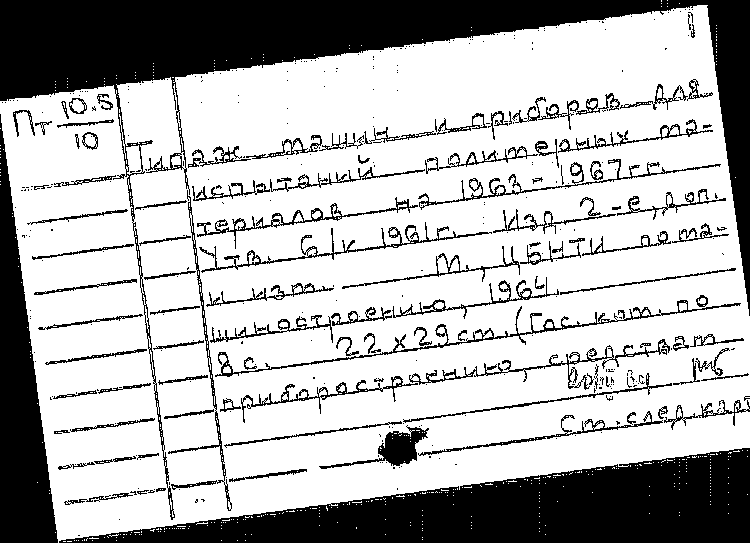 1
Пт 10.5
10
Типаж машин и приборов для
испытаний полимерных ма-
териалов на 1963-1967гг.
Утв. 6/X 1961г. Изд. 2-е, доп.
и изм. М., ЦБНТИ по ма-
шиностроению, 1964.
8 с. 22 х 29см. (Гос. ком. по
приборостроению, средствам
См. след. карт